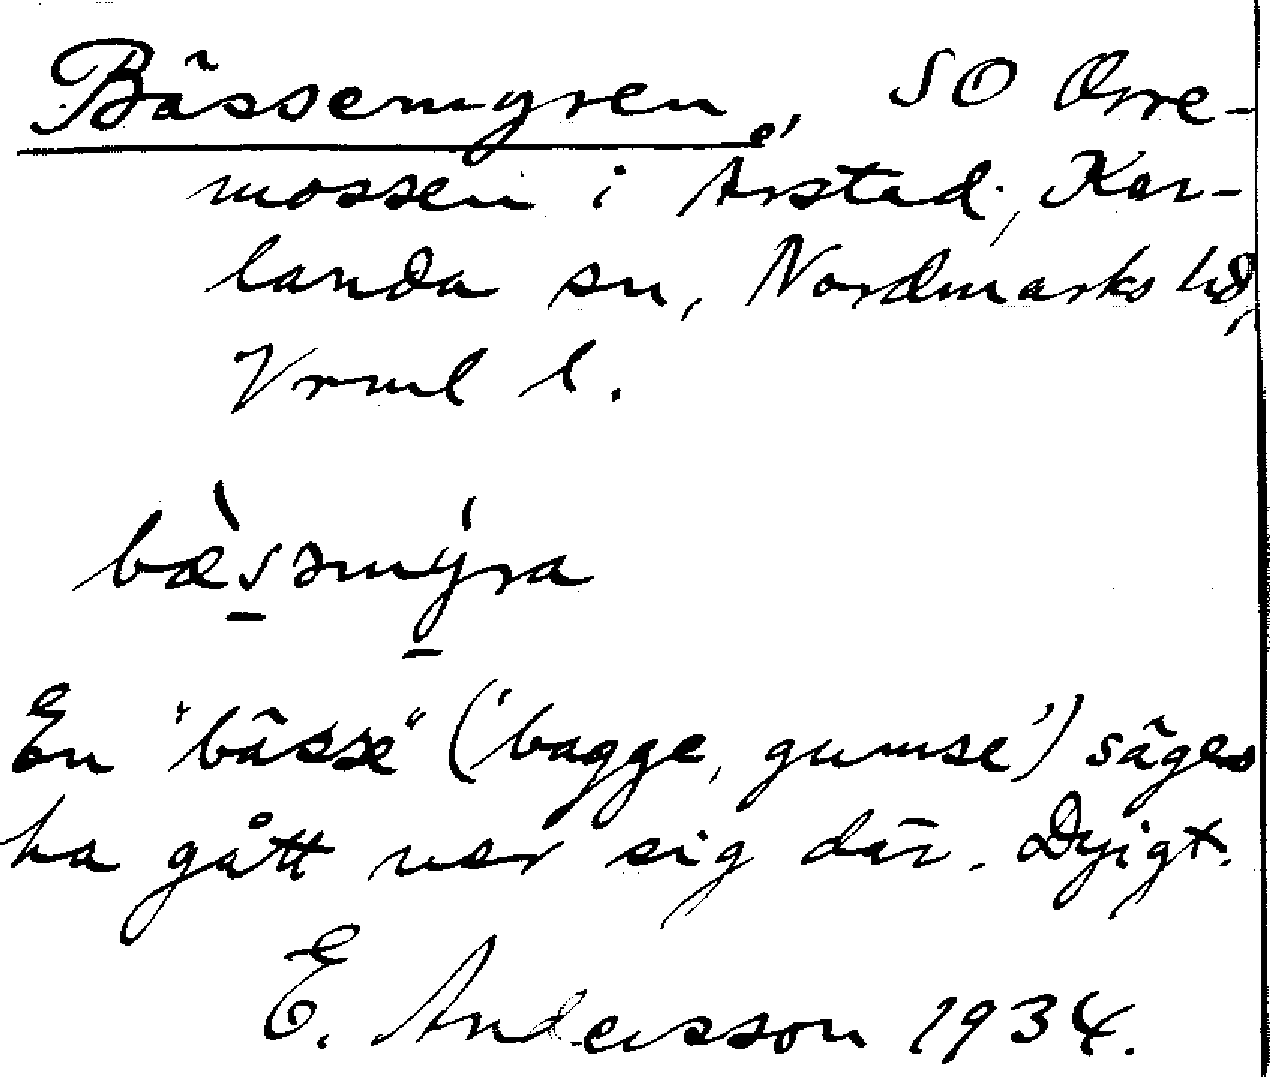 Bässemyren, SO Orre-
mossen i Årstad, Kar-
landa sn, Nordmarks hd,
Vrml l.
bæ̀sәmýra
En "bässe" ('bagge, gumse') säges
ha gått ner sig där. Dyigt.
E. Andersson 1934.